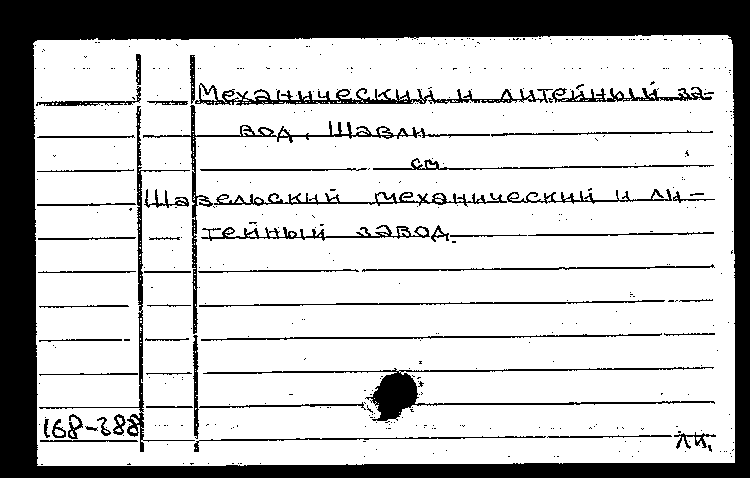 Механический и литейный за-
вод, Шавли
см.
Шавельский механический и ли-
тейный завод.
168-388
лк.